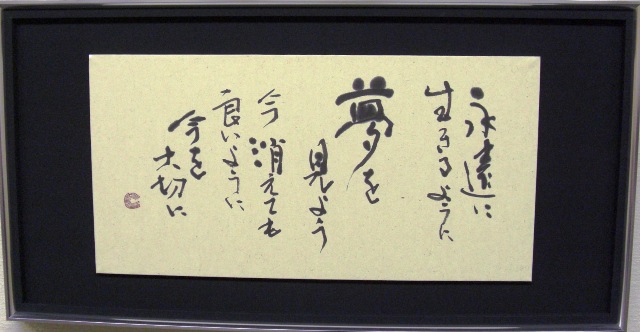 永遠に
生きるように
夢を
見よう
今 消えても
良いように
今を
大切に